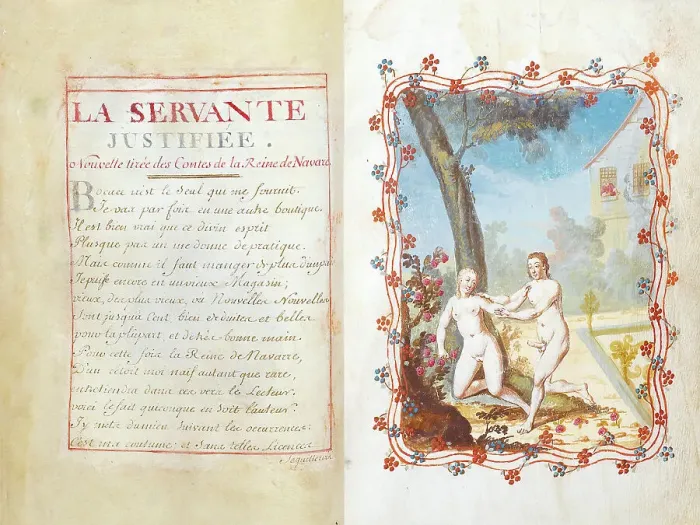 LA SERVANTE
JUSTIFIÉE.
Nouvelle tirée des Contes de la Reine de Navare
Bocace n'est le Seul qui me fournit.
Je vax par fois en une autre boutique.
Il est bien vrai que ce divin esprit
Plusque pas un me donne de pratique.
Mais comme il faut manger de plus d'un pain
Je puise encore en un vieux Magasin;
vieux, des plus vieux, où Nouvelles Nouvelles
Sont jusqu'à Cent bien deduites et belles
pour la plûpart, et de très bonne main.
Pour cette fois la Reine de Navarre,
D'un c'étoit moi naïf autant que rare,
entretiendra dans ces vers le Lecteur.
voici le fait quiconque en Soit l'auteur.
J'y mets du mien Suivant les occurrences:
C'est ma coutume; et Sans telles Licences
Je quitterois